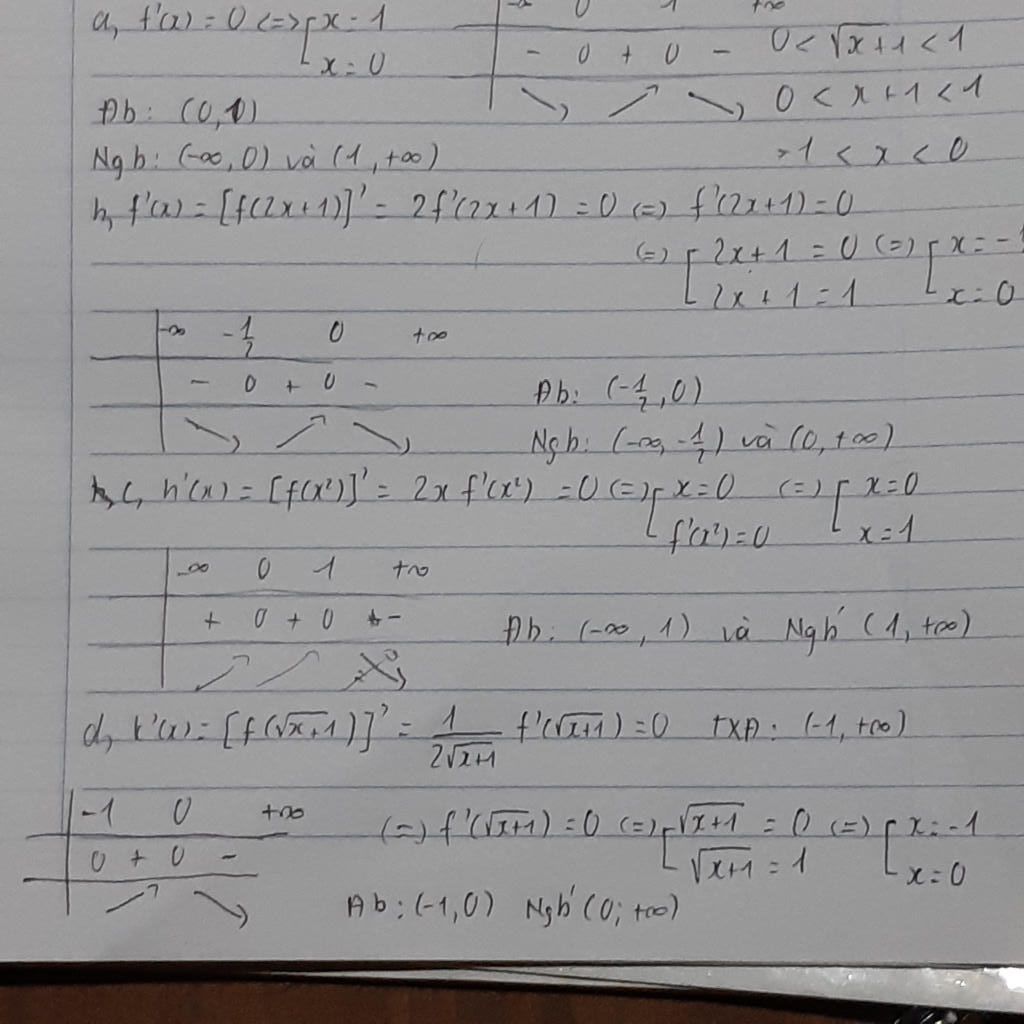 a, f'(x) = 0 <=> [ x = 1
x = 0
-∞ 0 1 +∞
- 0 + 0 -
↘ ↗ ↘
0 < √x+1 < 1
0 < x+1 < 1
-1 < x < 0
Đb: (0,1)
Ngb: (-∞,0) và (1,+∞)
b, f'(x) = [f(2x+1)]' = 2f'(2x+1) = 0 (=) f'(2x+1) = 0
(=) [ 2x+1 = 0 (=) [ x = -1
2x+1 = 1 x = 0
-∞ -1/2 0 +∞
- 0 + 0 -
↘ ↗ ↘
Đb: (-1/2, 0)
Ngb: (-∞, -1/2) và (0, +∞)
c, h'(x) = [f(x²)]' = 2x f'(x²) = 0 (=) [ x = 0 (=) [ x = 0
f'(x²) = 0 x = 1
-∞ 0 1 +∞
+ 0 + 0 -
↗ ↗ ↘
Đb: (-∞, 1) và Ngb (1, +∞)
d, k'(x) = [f(√x+1)]' = 1/(2√x+1) f'(√x+1) = 0 TXĐ: (-1, +∞)
-1 0 +∞
0 + 0 -
↗ ↘
(=) f'(√x+1) = 0 (=) [ √x+1 = 0 (=) [ x = -1
√x+1 = 1 x = 0
Đb: (-1,0) Ngb (0; +∞)